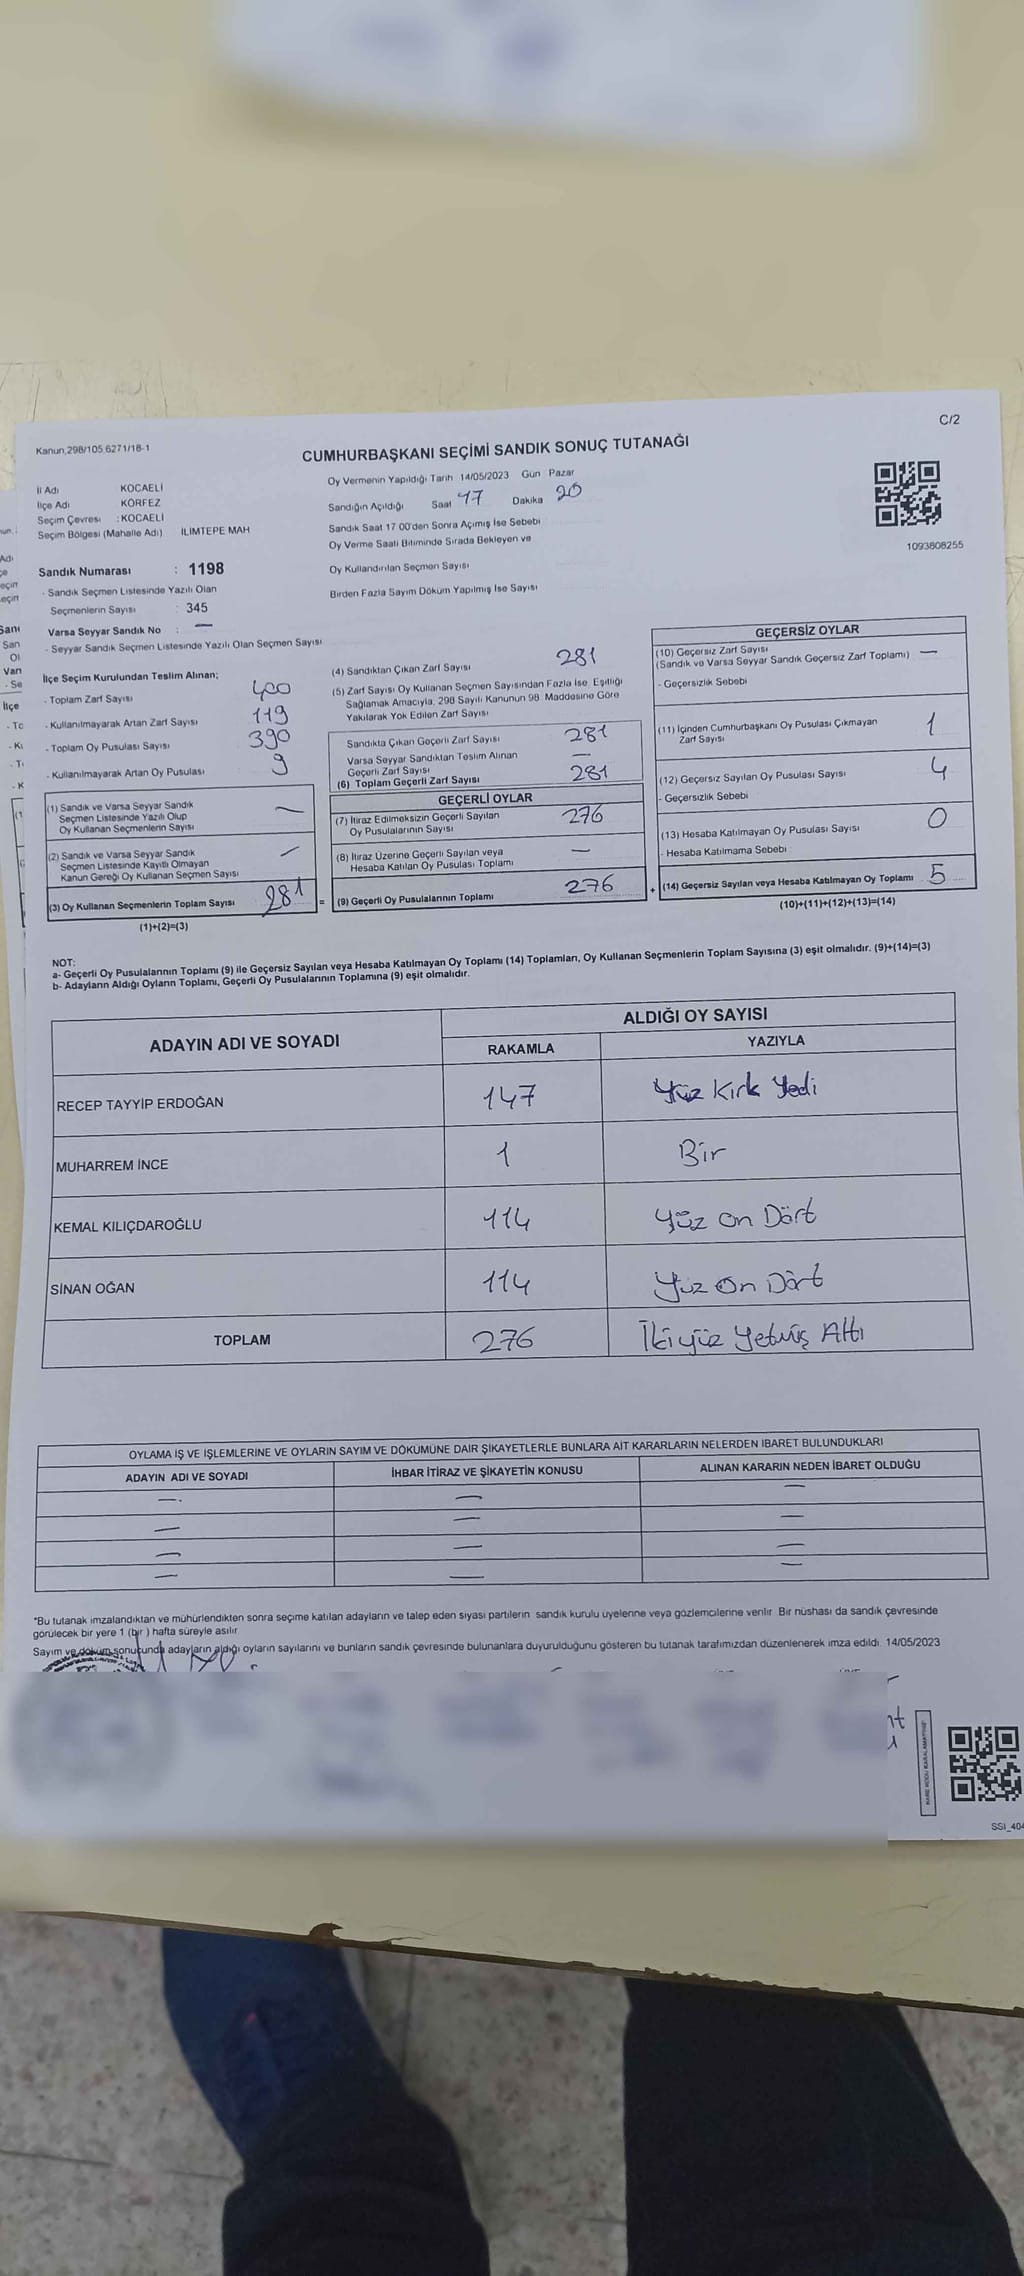 C/2
Kanun,298/105,6271/18-1
CUMHURBAŞKANI SEÇİMİ SANDIK SONUÇ TUTANAĞI
İl Adı KOCAELİ
İlçe Adı KÖRFEZ
Seçim Çevresi : KOCAELİ
Seçim Bölgesi (Mahalle Adı) İLİMTEPE MAH
Sandık Numarası : 1198
- Sandık Seçmen Listesinde Yazılı Olan
Seçmenlerin Sayısı : 345
Varsa Seyyar Sandık No : —
- Seyyar Sandık Seçmen Listesinde Yazılı Olan Seçmen Sayısı
Oy Vermenin Yapıldığı Tarih 14/05/2023 Gün Pazar
Sandığın Açıldığı Saat 17 Dakika 20
Sandık Saat 17 00'den Sonra Açımış İse Sebebi
Oy Verme Saati Bitiminde Sırada Bekleyen ve
Oy Kullandırılan Seçmen Sayısı
Birden Fazla Sayım Döküm Yapılmış İse Sayısı
1093808255
İlçe Seçim Kurulundan Teslim Alınan;
- Toplam Zarf Sayısı 400
- Kullanılmayarak Artan Zarf Sayısı 119
- Toplam Oy Pusulası Sayısı 390
- Kullanılmayarak Artan Oy Pusulası 9
(1) Sandık ve Varsa Seyyar Sandık
Seçmen Listesinde Yazılı Olup
Oy Kullanan Seçmenlerin Sayısı —
(2) Sandık ve Varsa Seyyar Sandık
Seçmen Listesinde Kayıtlı Olmayan
Kanun Gereği Oy Kullanan Seçmen Sayısı —
(3) Oy Kullanan Seçmenlerin Toplam Sayısı 281 =
(1)+(2)=(3)
(4) Sandıktan Çıkan Zarf Sayısı 281
(5) Zarf Sayısı Oy Kullanan Seçmen Sayısından Fazla İse, Eşitliği
Sağlamak Amacıyla, 298 Sayılı Kanunun 98. Maddesine Göre
Yakılarak Yok Edilen Zarf Sayısı
Sandıkta Çıkan Geçerli Zarf Sayısı 281
Varsa Seyyar Sandıktan Teslim Alınan —
Geçerli Zarf Sayısı
(6) Toplam Geçerli Zarf Sayısı 281
GEÇERLİ OYLAR
(7) İtiraz Edilmeksizin Geçerli Sayılan
Oy Pusulalarının Sayısı 276
(8) İtiraz Üzerine Geçerli Sayılan veya
Hesaba Katılan Oy Pusulası Toplamı —
(9) Geçerli Oy Pusulalarının Toplamı 276 +
GEÇERSİZ OYLAR
(10) Geçersiz Zarf Sayısı
(Sandık ve Varsa Seyyar Sandık Geçersiz Zarf Toplamı) —
- Geçersizlik Sebebi
(11) İçinden Cumhurbaşkanı Oy Pusulası Çıkmayan
Zarf Sayısı 1
(12) Geçersiz Sayılan Oy Pusulası Sayısı 4
- Geçersizlik Sebebi
(13) Hesaba Katılmayan Oy Pusulası Sayısı 0
- Hesaba Katılmama Sebebi
(14) Geçersiz Sayılan veya Hesaba Katılmayan Oy Toplamı 5
(10)+(11)+(12)+(13)=(14)
NOT:
a- Geçerli Oy Pusulalarının Toplamı (9) ile Geçersiz Sayılan veya Hesaba Katılmayan Oy Toplamı (14) Toplamları, Oy Kullanan Seçmenlerin Toplam Sayısına (3) eşit olmalıdır. (9)+(14)=(3)
b- Adayların Aldığı Oyların Toplamı, Geçerli Oy Pusulalarının Toplamına (9) eşit olmalıdır.
ADAYIN ADI VE SOYADI ALDIĞI OY SAYISI
RAKAMLA YAZIYLA
RECEP TAYYİP ERDOĞAN 147 Yüz Kırk Yedi
MUHARREM İNCE 1 Bir
KEMAL KILIÇDAROĞLU 114 Yüz On Dört
SİNAN OĞAN 114 Yüz On Dört
TOPLAM 276 İkiyüz Yetmiş Altı
OYLAMA İŞ VE İŞLEMLERİNE VE OYLARIN SAYIM VE DÖKÜMÜNE DAİR ŞİKAYETLERLE BUNLARA AİT KARARLARIN NELERDEN İBARET BULUNDUKLARI
ADAYIN ADI VE SOYADI İHBAR İTİRAZ VE ŞİKAYETİN KONUSU ALINAN KARARIN NEDEN İBARET OLDUĞU
— — —
— — —
— — —
— — —
*Bu tutanak imzalandıktan ve mühürlendikten sonra seçime katılan adayların ve talep eden siyasi partilerin sandık kurulu üyelerine veya gözlemcilerine verilir Bir nüshası da sandık çevresinde
görülecek bir yere 1 (bir ) hafta süreyle asılır
Sayım ve döküm sonucunda adayların aldığı oyların sayılarını ve bunların sandık çevresinde bulunanlara duyurulduğunu gösteren bu tutanak tarafımızdan düzenlenerek imza edildi. 14/05/2023
SSİ_404